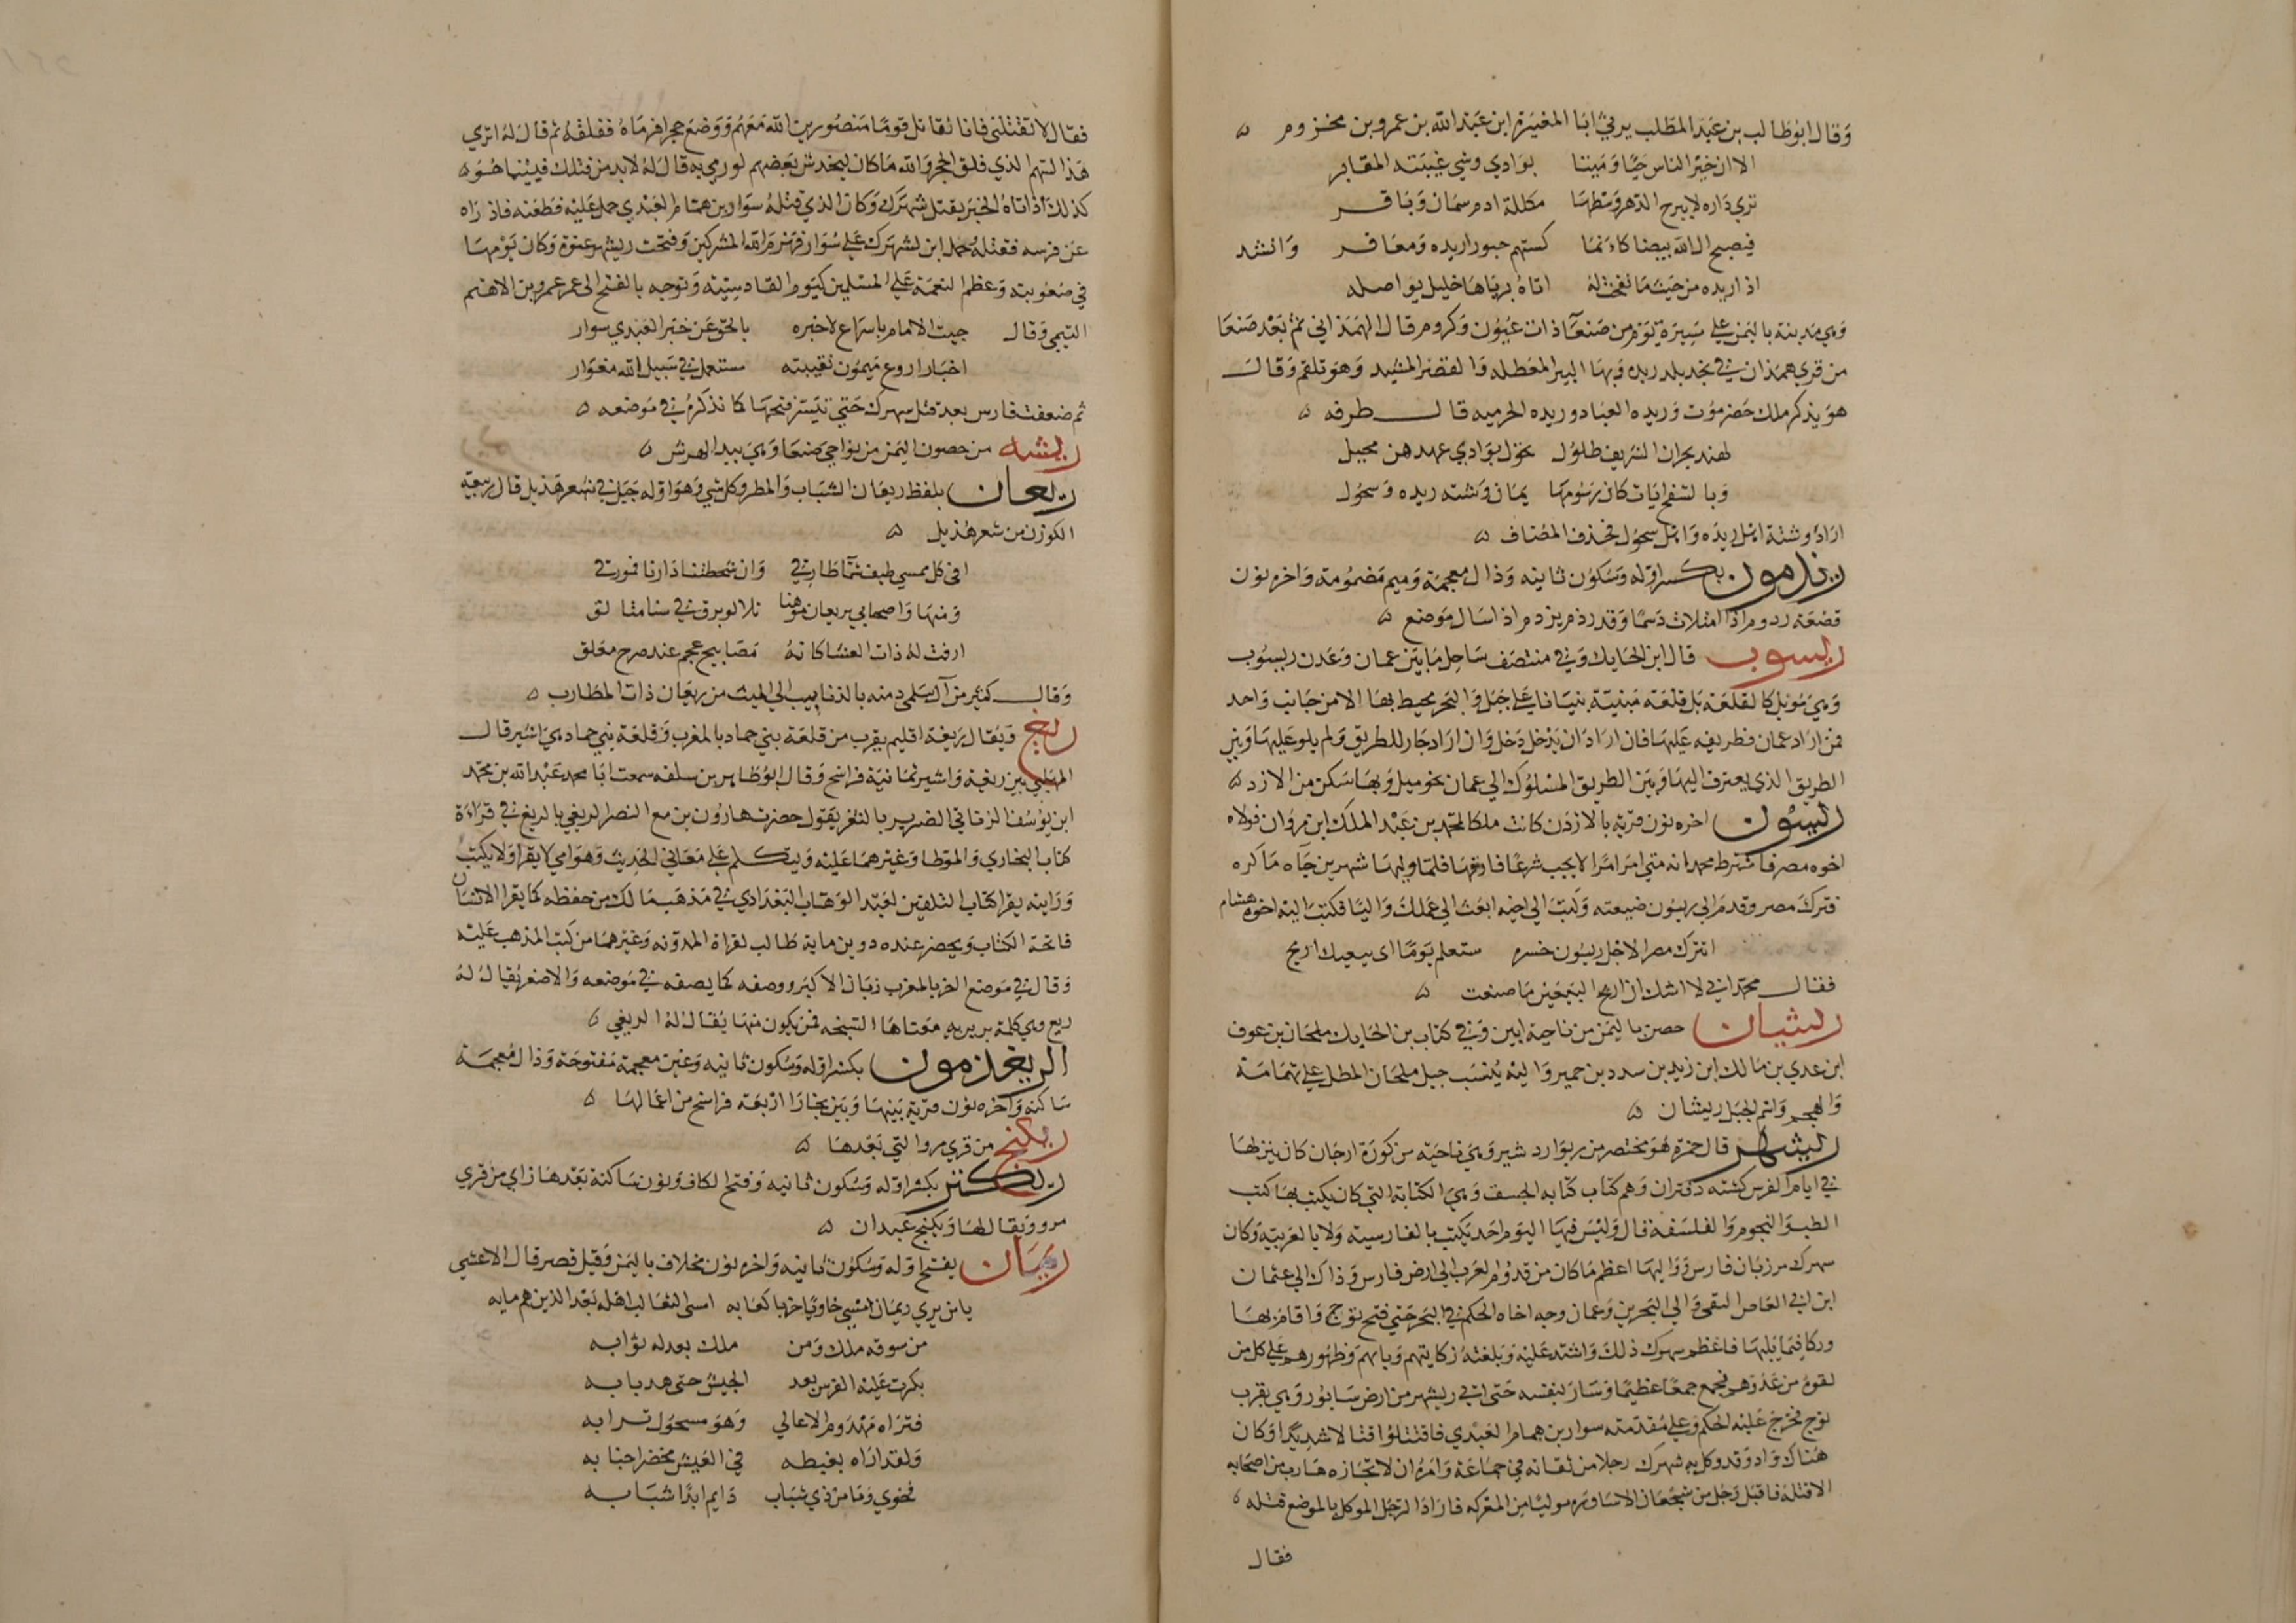 وقال ابو طالب بن عبد المطلب يرثي ابا المغيرة ابن عبد الله بن عمرو بن مخزوم ه
الا ان خير الناس حيا وميتا بوادي وشي غيبته المقابر
تري داره لا يبرح الدهر وسطها مكللة ادم سمان وباقر
فيصبح ال الله بيضا كانما كستهم حبورا ريده ومعافر وانشد
اذا ريده من حيث ما نفحت له اتاه برياها خليل يواصله
وهي مدينة باليمن علي مسيرة يوم من صنعآ ذات عيون وكروم قال الهمذاني ثم بعد صنعا
من قري همذان في نجد بلد ريده وبها البير المعطله والقصر المشيد وهو تلقم وقال
هو يذكر ملك حضرموت وريده العباد وريده الحرميه قال طرفه ه
لهند بحران الشريف طلول تحول بوادي عهدهن محيل
وبالسفح ايات كان رسومها يمان وشته ريده وسحول
اراد وشته اهل ريده واهل سحول فحذف المضاف ه
ريذمون بكسر اوله وسكون ثانيه وذال معجمة وميم مضمومة واخره نون
قصعة رذوم اذا امتلات دسما وقد رذم يرذم اذا سال موضع ه
ريسوب قال ابن الحايك وفي منتصف ساحل ما بين عمان وعدن ريسوب
وهي موئل كالقلعة بل قلعة مبنية بنيانا علي جبل والبحر محيط بها الا من جانب واحد
فمن اراد عمان فطريقه عليها فان اراد ان يدخل دخل وان اراد جاز للطريق ولم يلو عليها وبين
الطريق الذي يعترف اليها وبين الطريق المسلوك الي عمان نحو ميل وبها سكن من الازد ه
ريسون اخره نون قرية بالاردن كانت ملكا لمحمد بن عبد الملك ابن مروان فولاه
اخوه مصر فاشترط محمد انه متي امر امرا لا يجب شرعا فارقها فلما وليها شهرين جآه ما كره
فترك مصر وقدم الي ريسون ضيعته وكتب الي اخيه ابعث الي عملك واليا فكتب اليه اخوه هشام
اتترك مصر لاجل ريسون خسره ستعلم يوما اي بيعيك اربح
فقال محمد اني لا اشك ان اربح البيعين ما صنعت ه
ريشان حصن باليمن من ناحية ابين وفي كتاب بن الحايك ملحان بن عوف
ابن عدي بن مالك ابن زيد بن سدد بن حمير واليه ينسب جبل ملحان المطل علي تهامة
والمهجم واسم الجبل ريشان ه
ريشهر قال حمزه هو مختصر من ريوارد شير وهي ناحية من كورة ارجان كان ينزلها
في ايام الفرس كشته دفتران وهم كتاب كتابه الجستق وهي الكتابة التي كان يكتب بها كتب
الطب والنجوم والفلسفه قال وليس فيها اليوم احد يكتب بالفارسيه ولا بالعربيه وكان
سهرك مرزبان فارس وواليها اعظم ما كان من قدوم العرب الي ارض فارس وذاك الي عثمان
ابن ابي العاص الثقفي والي البحرين وعمان وجه اخاه الحكم في البحر حتي فتح توج واقام بها
فاعظم سهرك ذلك واشتد عليه وبلغته نكايتهم وباسهم وظهورهم علي كل من
لقوه من عدوهم فجمع جمعا عظيما وسار بنفسه حتي اتي ريشهر من ارض سابور وهي بقرب
توج فخرج عليه الحكم وعلي مقدمته سوار بن همام العبدي فاقتتلوا قتالا شديدا وكان
هناك واد وقد وكل به شهرك رجلا من ثقاته في جماعة وامره ان لا يجتازه هارب من اصحابه
الا قتله فاقبل رجل من شجعان الاساوره موليا من المعركه فاراد الرجل الموكل بالموضع قتله ه
فقال
فقال لا تقتلني فانا نقاتل قوما منصورين الله معهم ووضع حجرا فرماه ففلقه ثم قال له اتري
هذا السهم الذي فلق الحجر والله ما كان ليخدش بعضهم لو رمي به قال له لا بد من قتلك فبينما هو ه
كذلك اذ اتاه الخبر بقتل شهرك وكان الذي قتله سوار بن همام العبدي حمل عليه فطعنه فاذراه
عن فرسه فقتله وحمل ابن لشهرك علي سوار فهزم الله المشركين وفتحت ريشهر عنوة وكان يومها
في صعوبته وعظم النعمة علي المسلمين كيوم القادسيه وتوجه بالفتح الي عمر عمرو بن الاهتم
التيمي وقال جيت الامام باسراع لاخبره بالحق عن خبر العبدي سوار
اخبار اروع ميمون نقيبته مستعمل في سبيل الله مغوار
ثم ضعفت فارس بعد قتل سهرك حتي تيسر فتحها كما نذكره في موضعه ه
ريشه من حصون اليمن من نواحي صنعا وهي بيد الهرش ه
ريعان بلفظ ريعان الشباب والمطر وكل شي وهو اوله جبل في شعر هذيل قال ربيعة
الكوذن من شعر هذيل ه
افي كل ممسي طيف شمآ طارقي وان شحطتنا دارنا فمورقي
ومنها واصحابي بريعان موهنا تلالو برق في سنا متالق
ارقت له ذات العشا كانه مصابيح عجم عند صرح مغلق
وقال كثير من آل سلمى دمنه بالذنايب الي الميث من ريعان ذات المطارب ه
ريغ ويقال ريغة اقليم بقرب من قلعة بني حماد بالمغرب وقلعة بني حماد هي اشير قال
المهلبي بين ريغة واشير ثمانية فراسخ وقال ابو طاهر بن سلفه سمعت ابا محمد عبد الله بن محمد
ابن يوسف الزناتي الضرير بالثغر يقول حضرت هارون بن مع النضر الريغي بالريغ في قراءة
كتاب البخاري والموطا وغيرهما عليه ويتكلم علي معاني الحديث وهو امي لا يقرا ولا يكتب
ورايته يقرا كتاب التلقين لعبد الوهاب البغدادي في مذهب مالك من حفظه كما يقرا الانسان
فاتحة الكتاب ويحضر عنده دوين ماية طالب لقراة المدونه وغيرها من كتب المذهب عليه
وقال في موضع اخر بالمغرب زبان الاكبر ووصفه كما يصفه في موضعه والاصغر يقال له
ريغ وهي كلمة بربريه معناها السبخه فمن يكون منها يقال له الريغي ه
الريغذمون بكسر اوله وسكون ثانيه وغين معجمة مفتوحة وذال معجمة
ساكنه وآخره نون قرية بينها وبين بخارا اربعة فراسخ من اعمالها ه
ريكنج من قري مرو التي بعدها ه
ريكنز بكسر اوله وسكون ثانيه وفتح الكاف ونون ساكنة بعدها زاي من قري
مرو ويقال لها ويكنج عبدان ه
ريمان بفتح اوله وسكون ثانيه واخره نون مخلاف باليمن وقيل قصر قال الاعشي
يا من يري ريمان امسي خاويا خربا كعابه امسى الثعالب اهله بعد الذين هم مابه
من سوقه ملك ومن ملك يعد له ثوابه
بكرت عليه الفرس بعد الجيش حتى هد بابه
فتراه مهدوم الاعالي وهو مسحول ترابه
ولقد اراه بغبطه في العيش مخضرا جنابه
فخوي وما من ذي شباب دايم ابدا شبابه